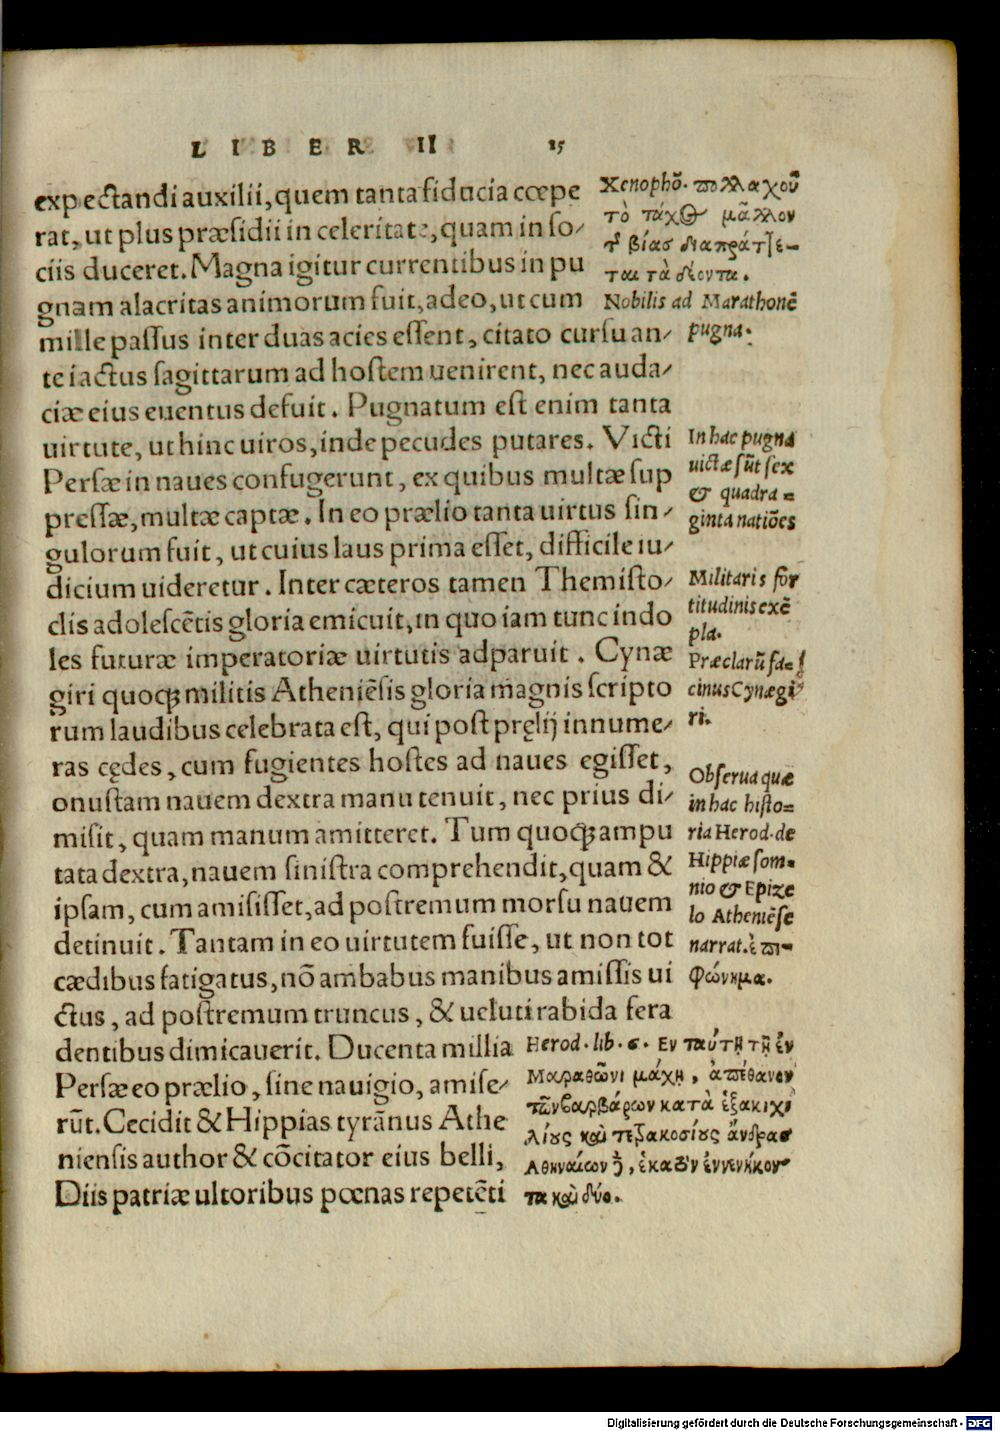 LIBER II 15
expectandi auxilii, quem tanta fiducia cœpe
rat, ut plus præsidii in celeritate, quam in so/
ciis duceret. Magna igitur currentibus in pu
gnam alacritas animorum fuit, adeo, ut cum
mille passus inter duas acies essent, citato cursu an/
te iactus sagittarum ad hostem uenirent, nec auda/
ciæ eius euentus defuit. Pugnatum est enim tanta
uirtute, ut hinc uiros, inde pecudes putares. Victi
Persæ in naues confugerunt, ex quibus multæ sup
pressæ, multæ captæ. In eo prælio tanta uirtus sin/
gulorum fuit, ut cuius laus prima esset, difficile iu/
dicium uideretur. Inter cæteros tamen Themisto/
clis adolescẽtis gloria emicuit, in quo iam tunc indo
les futuræ imperatoriæ uirtutis adparuit. Cynæ
giri quoqȝ militis Atheniẽsis gloria magnis scripto
rum laudibus celebrata est, qui post pręlij innume/
ras cędes, cum fugientes hostes ad naues egisset,
onustam nauem dextra manu tenuit, nec prius di/
misit, quam manum amitteret. Tum quoqȝ ampu
tata dextra, nauem sinistra comprehendit, quam &
ipsam, cum amisisset, ad postremum morsu nauem
detinuit. Tantam in eo uirtutem fuisse, ut non tot
cædibus fatigatus, nõ ambabus manibus amissis ui
ctus, ad postremum truncus, & ueluti rabida fera
dentibus dimicauerit. Ducenta millia
Persæ eo prælio, sine nauigio, amise/
rũt. Cecidit & Hippias tyrãnus Athe
niensis author & cõcitator eius belli,
Diis patriæ ultoribus pœnas repetẽti
Xenophõ. πολλαχοῦ
τὸ τάχος μᾶλλον
τῆς βίας διαπράττε-
ται τὰ δέοντα.
Nobilis ad Marathonẽ
pugna.
In hac pugna
uictæ sũt sex
& quadra=
ginta natiões
Militaris for
titudinis exẽ
pla.
Præclarũ fa=
cinus Cynægi
ri.
Obserua quæ
in hac histo=
ria Herod. de
Hippiæ som-
nio & Epize
lo Atheniẽse
narrat. ἐπι-
φώνημα.
Herod. lib. ς. Εν ταύτῃ τῇ ἐν
Μαραθῶνι μάχῃ, ἀπέθανον
τῶν βαρβάρων κατὰ ἑξακιχι
λίους καὶ τετρακοσίους ἄνδρας
Αθηναίων δὲ, ἑκατὸν ἐννενήκον
τα καὶ δύο.
Digitalisierung gefördert durch die Deutsche Forschungsgemeinschaft - DFG